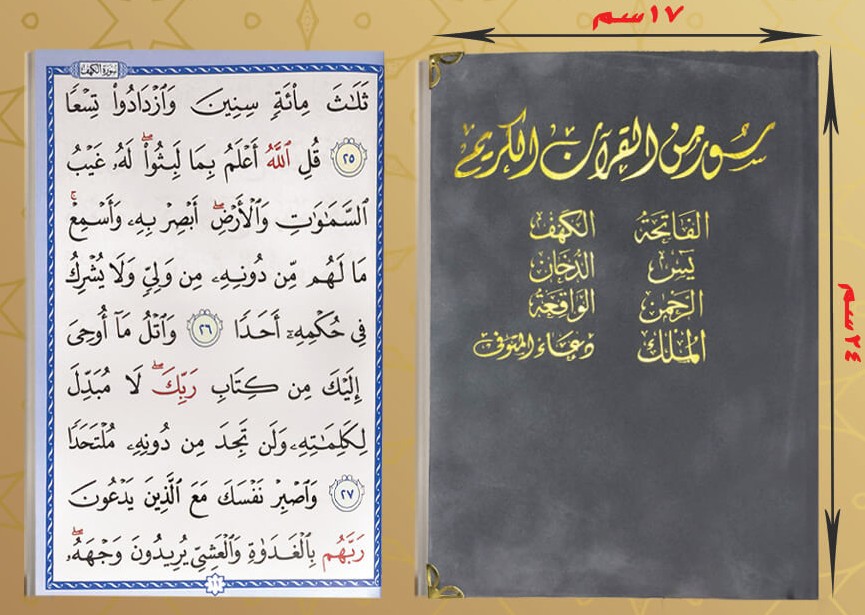 ١٧سم
سور من القرآن الكريم
الفاتحة الكهف
يس الدخان
الرحمن الواقعة
الملك دعاء المتوفى
٢٤سم
سورة الكهف
ثَلَٰثَ مِاْئَةٖ سِنِينَ وَٱزۡدَادُواْ تِسۡعٗا
٢٥ قُلِ ٱللَّهُ أَعۡلَمُ بِمَا لَبِثُواْۖ لَهُۥ غَيۡبُ
ٱلسَّمَٰوَٰتِ وَٱلۡأَرۡضِۖ أَبۡصِرۡ بِهِۦ وَأَسۡمِعۡۚ
مَا لَهُم مِّن دُونِهِۦ مِن وَلِيّٖ وَلَا يُشۡرِكُ
فِي حُكۡمِهِۦٓ أَحَدٗا ٢٦ وَٱتۡلُ مَآ أُوحِيَ
إِلَيۡكَ مِن كِتَابِ رَبِّكَۖ لَا مُبَدِّلَ
لِكَلِمَٰتِهِۦ وَلَن تَجِدَ مِن دُونِهِۦ مُلۡتَحَدٗا
٢٧ وَٱصۡبِرۡ نَفۡسَكَ مَعَ ٱلَّذِينَ يَدۡعُونَ
رَبَّهُم بِٱلۡغَدَوٰةِ وَٱلۡعَشِيِّ يُرِيدُونَ وَجۡهَهُۥۖ